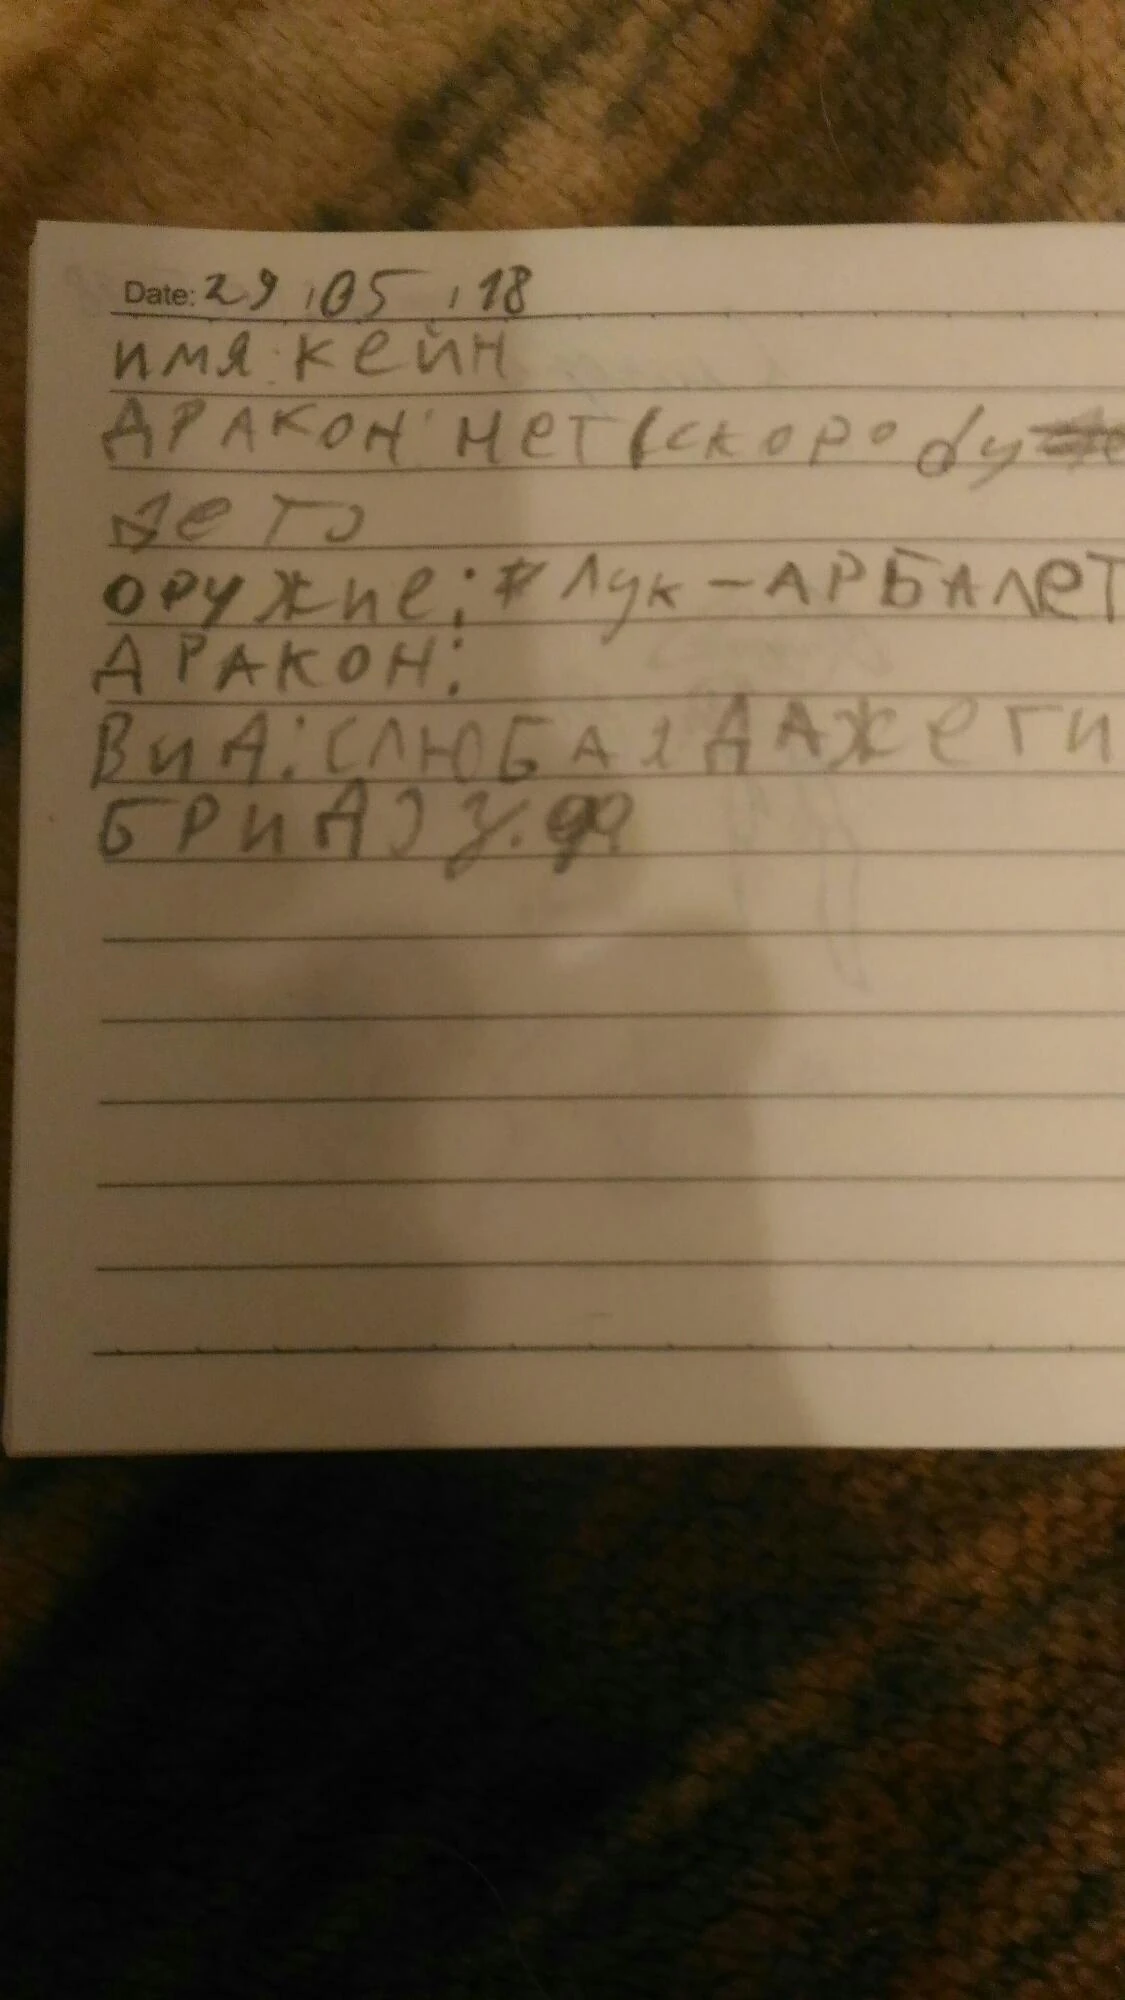 Date: 29.05.18
имя: кейн
ДРАКОН: нет (скоро бу
дет)
оружие: лук-АРБАЛЕТ
ДРАКОН:
ВиД: (ЛЮБАЯ ДАЖЕ ГИ
БРИД)